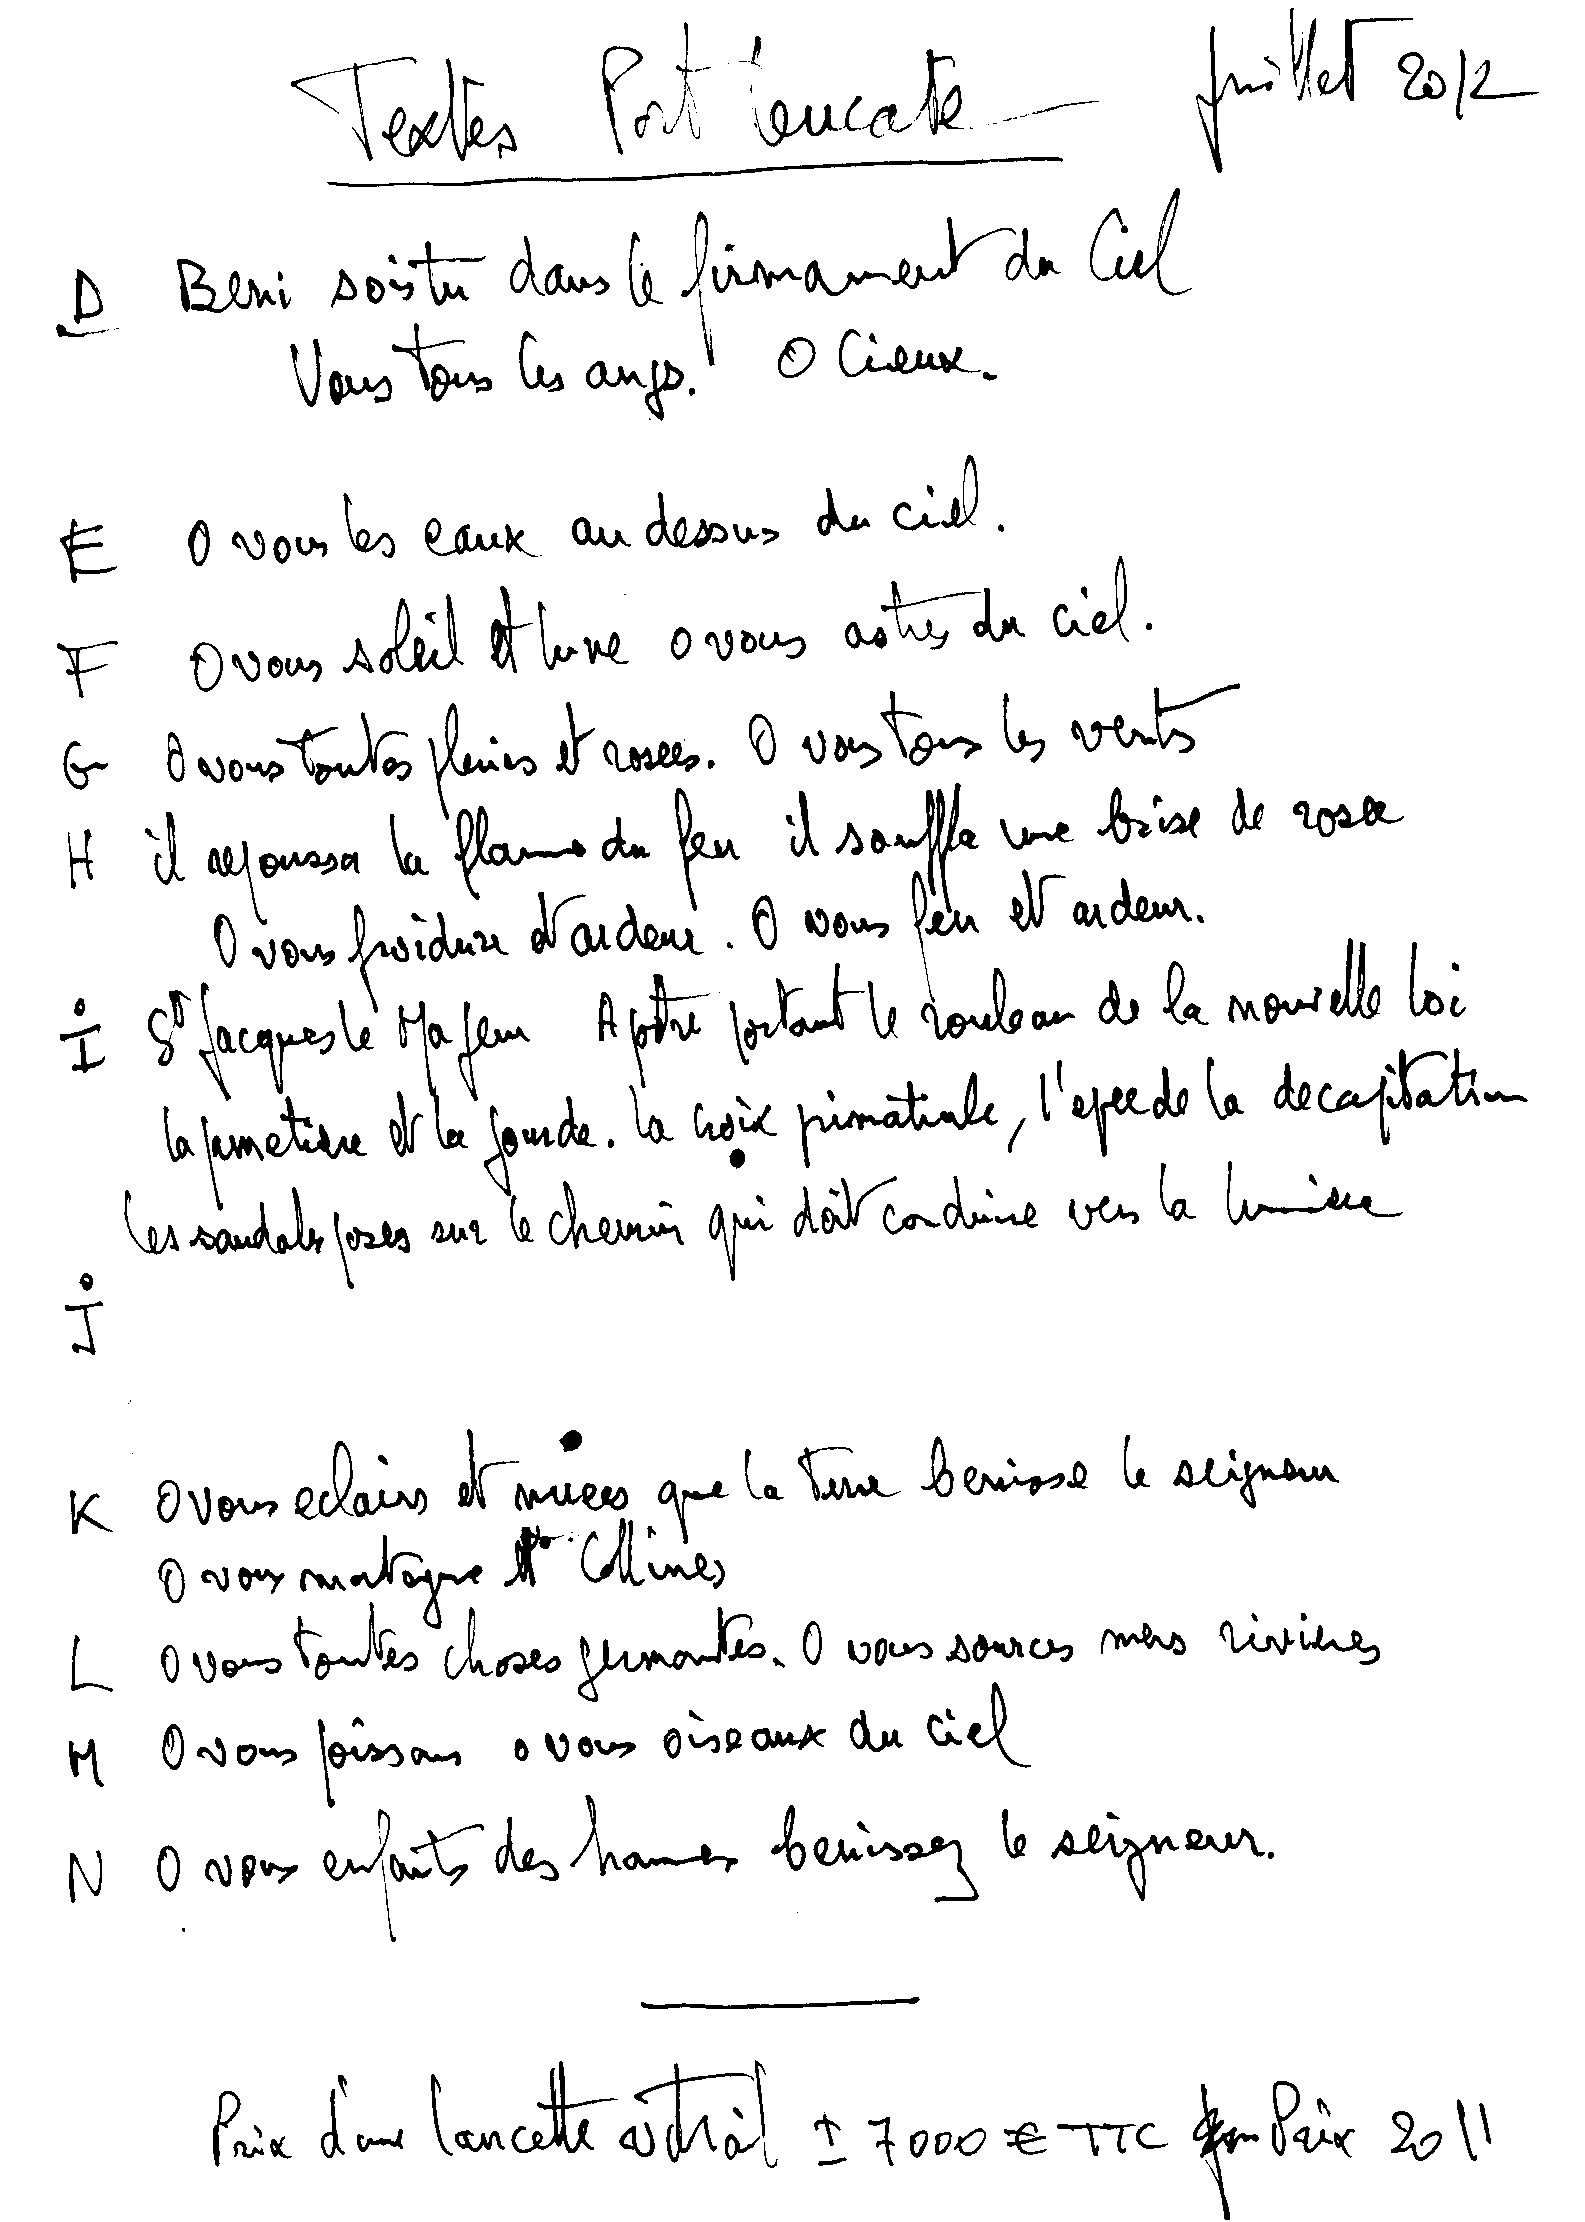 Textes Port Leucate juillet 2012
D Beni sois tu dans le firmament du Ciel
Vous tous les anges. O Cieux.
E O vous les eaux au dessus du ciel.
F O vous soleil et lune o vous astres du ciel.
G O vous toutes pluies et rosees. O vous tous les vents
H il repoussa la flamme du feu il souffla une brise de rosee
O vous froidure et ardeur. O vous feu et ardeur.
I St Jacques le Majeur Apotre portant le rouleau de la nouvelle loi
la et la gourde. la croix primatiale, l'epee de la decapitation
les sandales poses sur le chemin qui doit conduire vers la lumiere
J
K O vous eclairs et nuees que la terre benisse le seigneur
O vous montagne et Collines
L O vous toutes choses germantes. O vous sources mers rivieres
M O vous poissons o vous oiseaux du ciel
N O vous enfants des hommes benissez le seigneur.
Prix d'une lancette vitrail ± 7000 € TTC Prix 2011